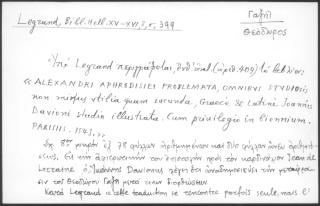 Legrand, Bibl. Hell. XV-XVI, 3, σ. 399
Γαζῆ
Θεόδωρος
Ὑπὸ Legrand περιγράφεται, ὑπ' ἀριθ. (ἀριθ. 409) τὸ βιβλίον:
«ALEXANDRI APHRODISIEI PROBLEMATA, OMNIBUS STUDIOSIS
non minus utilia quam iucunda, Graecè & Latinè Ioannis
Davioni studio illustrata. Cum privilegio in biennium.
PARISIIS. 1541.»
Σχ. 8ον μικρὸν ἐξ 78 φύλλων ἠριθμημένων καὶ δύο φύλλων ἄνευ ἀριθμή-
σεως. τὸν καρδινάλιον Jean de
Lorraine ὁ Ἰωάννης Davionus λέγει ὅτι τὴν μετάφρα-
σιν τοῦ Θεοδώρου Γαζῆ μετὰ διορθώσεων
Κατὰ Legrand «cette traduction se rencontre parfois seule, mais l'